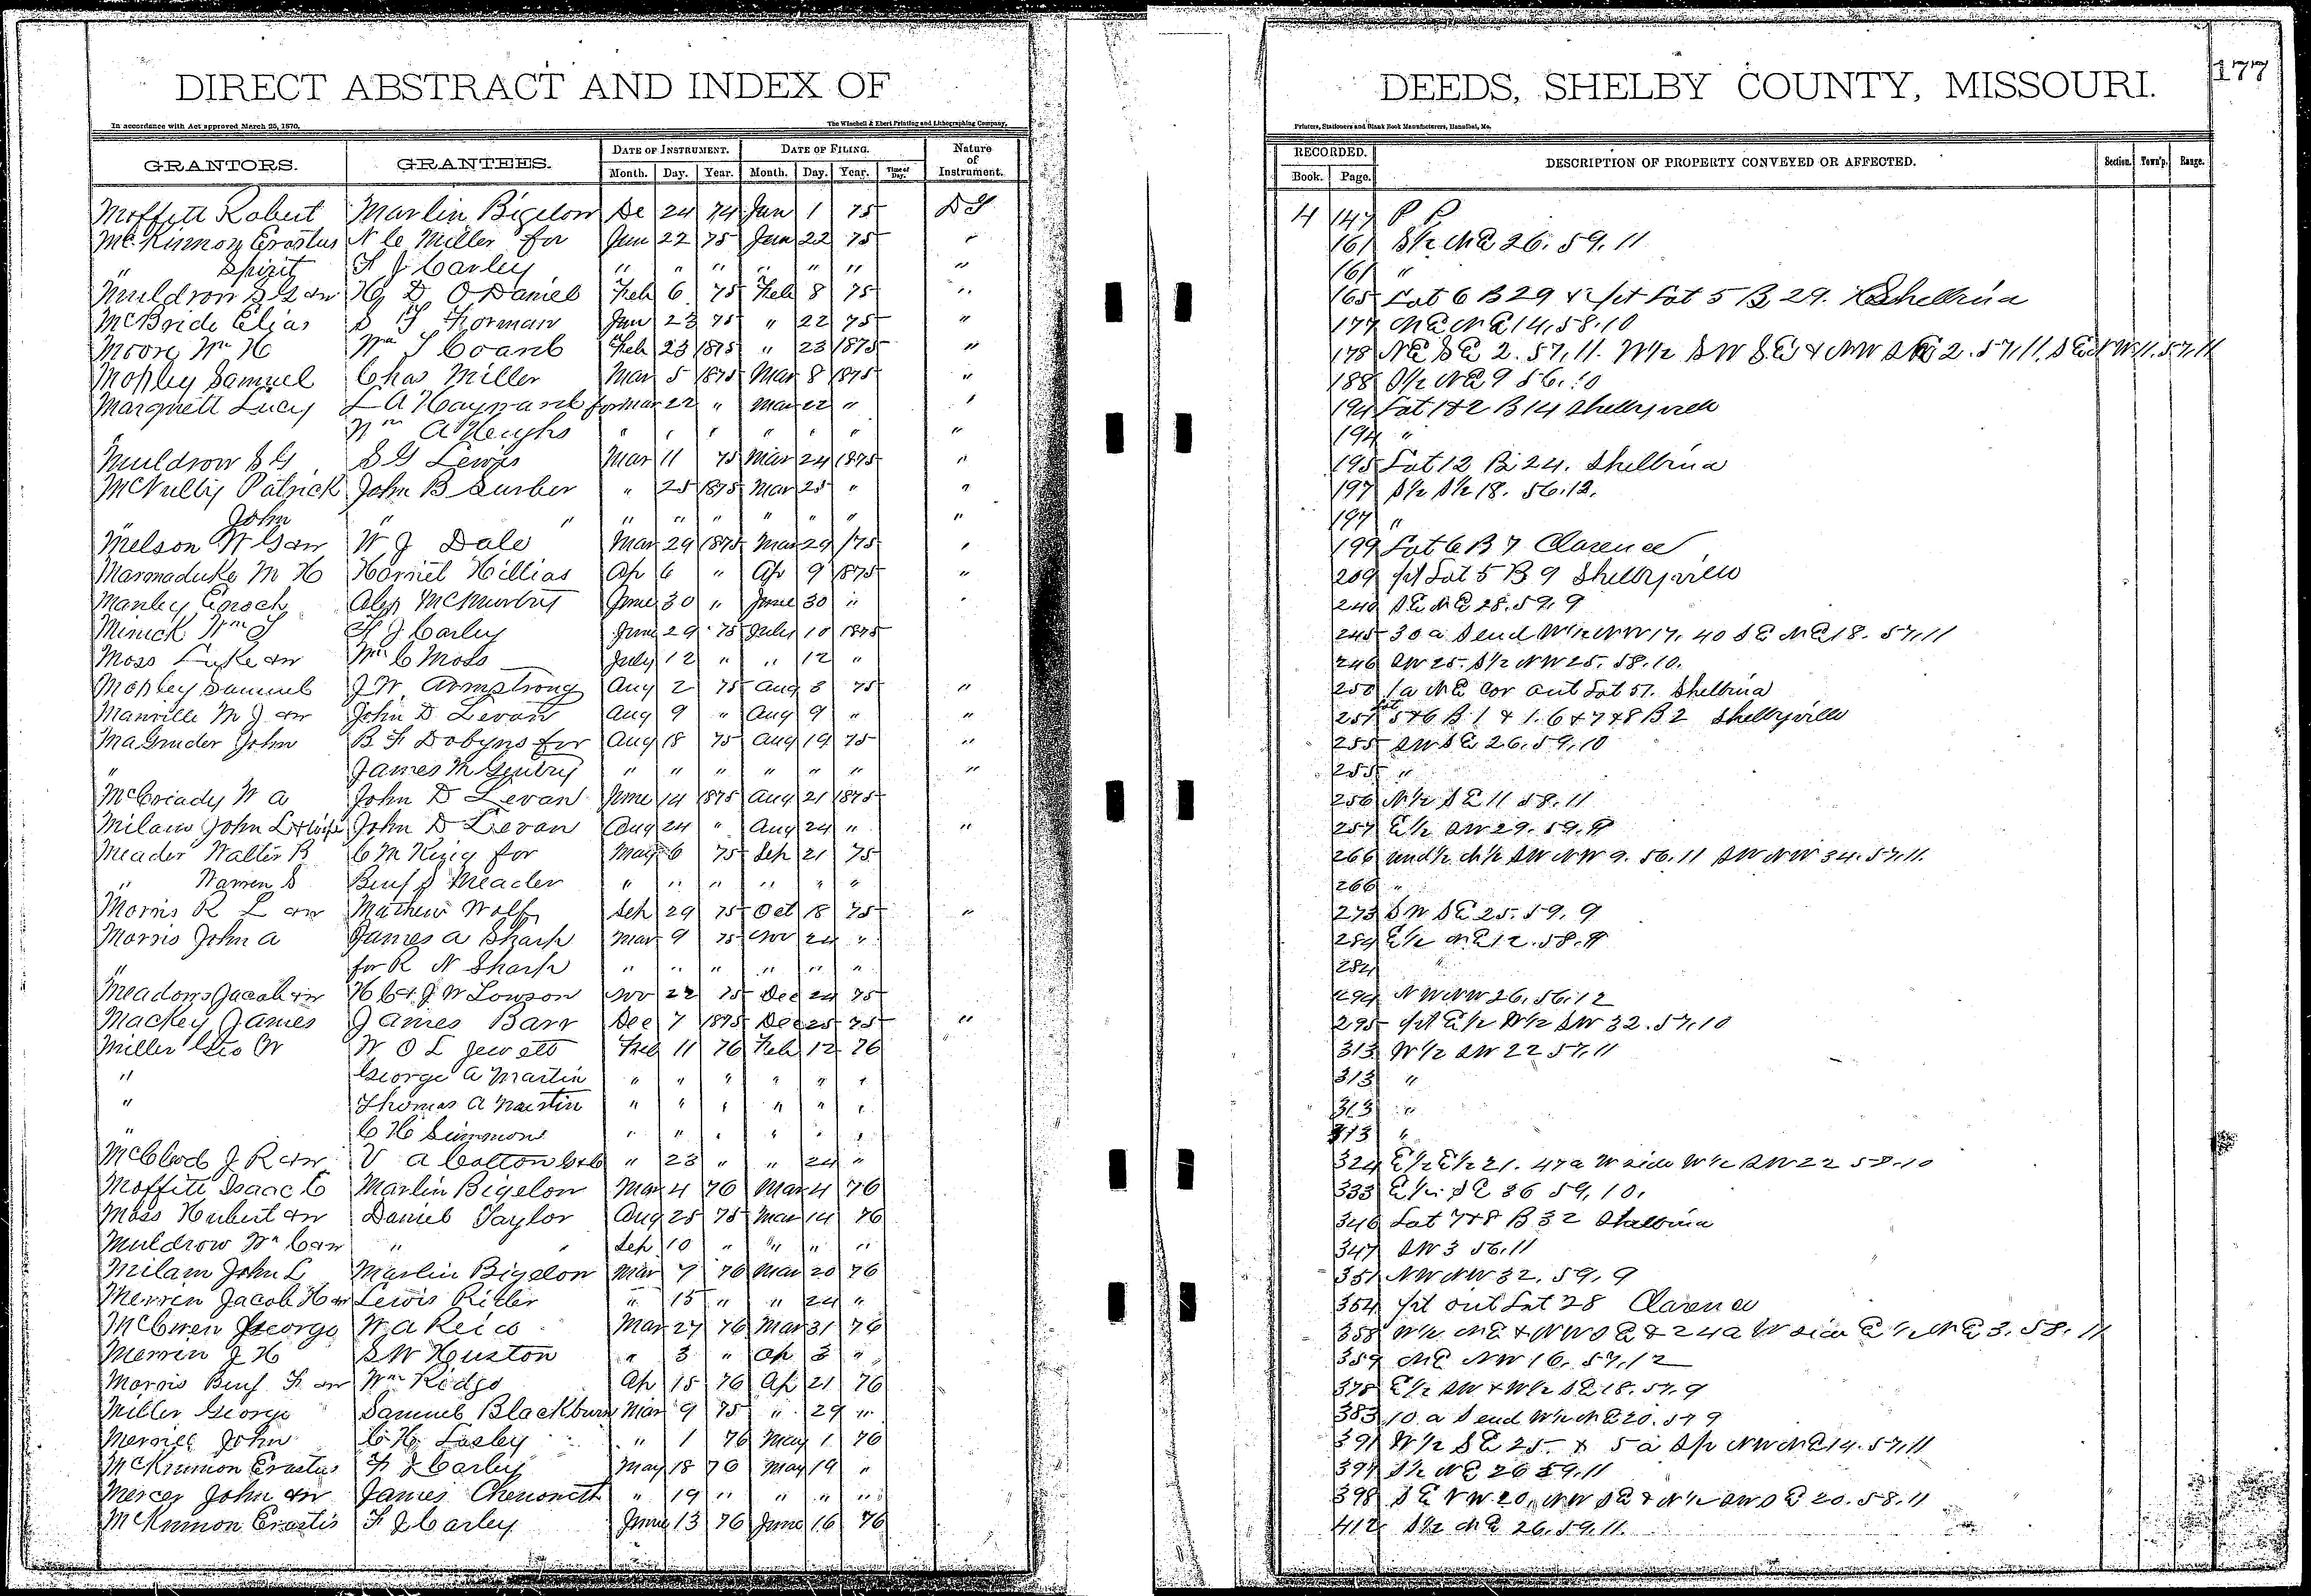 DIRECT ABSTRACT AND INDEX OF DEEDS, SHELBY COUNTY, MISSOURI. 177
In accordance with Act approved March 25, 1870. The Winchell & Ebert Printing and Lithographing Company, Printers, Stationers and Blank Book Manufacturers, Hannibal, Mo.
GRANTORS. GRANTEES. DATE OF INSTRUMENT. DATE OF FILING. Nature of Instrument. RECORDED. DESCRIPTION OF PROPERTY CONVEYED OR AFFECTED. Section. Town'p. Range.
Month. Day. Year. Month. Day. Year. Time of Day. Book. Page.
Moffitt Robert Marlin Bigelow De 24 74 Jan 1 75 4 147 P P
McKinnon Erastus N C Miller for Jan 22 75 Jan 22 75 " 161 S½ NE 26. 59. 11
" Spirit F J Carley " " " " " " " 161 "
Muldron S G & w D O Daniel Feb 6 75 Feb 8 75 " 165 Lot 6 B 29 & pt Lot 5 B 29. Shelbina
McBride Elias S F Forman Jan 23 75 " 22 75 " 177 NE NE 14. 58. 10
Moore Wm H Wm Feb 23 1875 " 23 1875 " 178 NE SE 2. 57. 11. W½ SW SE & NW SE 2. 57. 11. SE NW 11. 57. 11
Mopley Samuel Chas Miller Mar 5 1875 Mar 8 1875 " 188 NE 9 56. 10
Marquett Lucy L A Hayward for Mar 22 " Mar 22 " " 194 Lot 1 & 2 B 14 Shelbyville
" Wm A Heughs " " " " " " " 194 "
Muldrow S G S G Lewis Mar 11 75 Mar 24 1875 " 195 Lot 12 B 24. Shelbina
McNulty Patrick John B Surber " 25 1875 Mar 25 " " 197 S½ S½ 18. 56. 12.
" John " " " " " " " " " 197 "
Melson W G & w W J Dale Mar 29 1875 Mar 29 1875 " 199 Lot 6 B 7 Clarence
Marmaduke M H Harriet Hillias Ap 6 " Ap 9 1875 " 209 pt Lot 5 B 9 Shelbyville
Manley Enoch Alex McMurtry June 30 " June 30 " " 240 SE NE 28. 59. 9
Minick Wm F J Carley June 29 75 July 10 1875 245 30 a S end W½ NW 17. 40 SE NE 18. 57. 11
Moss Luke & w Wm C Moss July 12 " " 12 " 246 SW 25. S½ NW 25. 58. 10.
Mopley Samuel J W Armstrong Aug 2 75 Aug 3 75 " 250 1 a NE cor out Lot 57. Shelbina
Manville M J & w John D Levan Aug 9 " Aug 9 " " 251 Lot 5 & 6 B 1 & 1. 6 & 7 & 8 B 2 Shelbyville
Magruder John B F Dobyns for Aug 18 75 Aug 19 75 " 255 SW SE 26. 59. 10
" James M Gentry " " " " " " " 255 "
McCriady W A John D Levan June 14 1875 Aug 21 1875 256 N½ SE 11 58. 11
Milam John L & wife John D Levan Aug 24 " Aug 24 " " 257 E½ SW 29. 59. 9
Meader Walter B C M King for May 6 75 Sep 21 75 266 und½ N½ SW NW 9. 56. 11 SW NW 34. 57. 11.
" Warren S Benj S Meader " " " " " " 266 "
Morris R L & w Mathew Wolf Sep 29 75 Oct 18 75 " 273 SW SE 25. 59. 9
Morris John A James A Sharp Mar 9 75 Nov 24 " 284 E½ NE 12. 58. 9
" for R N Sharp " " " " " " 284 "
Meadows Jacob & w H C & J W Lowson Nov 22 75 Dec 24 75 294 NW NW 26. 56. 12
Mackey James James Barr Dec 7 1875 Dec 25 75 " 295 pt E½ W½ SW 32. 57. 10
Miller Geo W W O L Jewett Feb 11 76 Feb 12 76 313 W½ SW 22 57. 11
" George A Martin " " " " " " 313 "
" Thomas A Martin " " " " " " 313 "
" C H Simmons " " " " " " 313 "
McCleod J R & w V A Cotton & Co " 23 " " 24 " 324 E½ E½ 21. 47 a W side W½ SW 22 58. 10
Moffitt Isaac C Marlin Bigelow Mar 4 76 Mar 4 76 333 E½ SE 36 59. 10.
Moss Hubert & w Daniel Taylor Aug 25 75 Mar 14 76 346 Lot 7 & 8 B 32 Shelbina
Muldrow Wm C & w " " Sep 10 " " " " 347 SW 3 56. 11
Milam John L Marlin Bigelow Mar 7 76 Mar 20 76 351 NW NW 32. 59. 9
Merrin Jacob H & w Lewis Ritter " 15 " " 24 " 354 pt out Lot 28 Clarence
McEwen George W A Reid Mar 27 76 Mar 31 76 358 W½ NE & NW SE & 24 a W side E½ NE 3. 58. 11
Merrin J H S W Huston " 3 " Ap 3 " 359 NE NW 16. 57. 12
Morris Benj F & w Wm Ridge Ap 15 76 Ap 21 76 378 E½ SW & W½ SE 18. 57. 9
Miller George Samuel Blackburn Mar 9 75 " 29 " 383 10 a S end W½ NE 20. 57 9
Merrill John C H Lasley " 1 76 May 1 76 391 W½ SE 25 & 5 a NW NE 14. 57. 11
McKinnon Erastus F J Carley May 18 76 May 19 " 397 S½ NE 26 59. 11
Mercer John & w James Chenoweth " 19 " " " " 398 SE NW 20, NW SE & N½ SW SE 20. 58. 11
McKinnon Erastis F J Carley June 13 76 June 16 76 412 S½ NE 26. 59. 11.